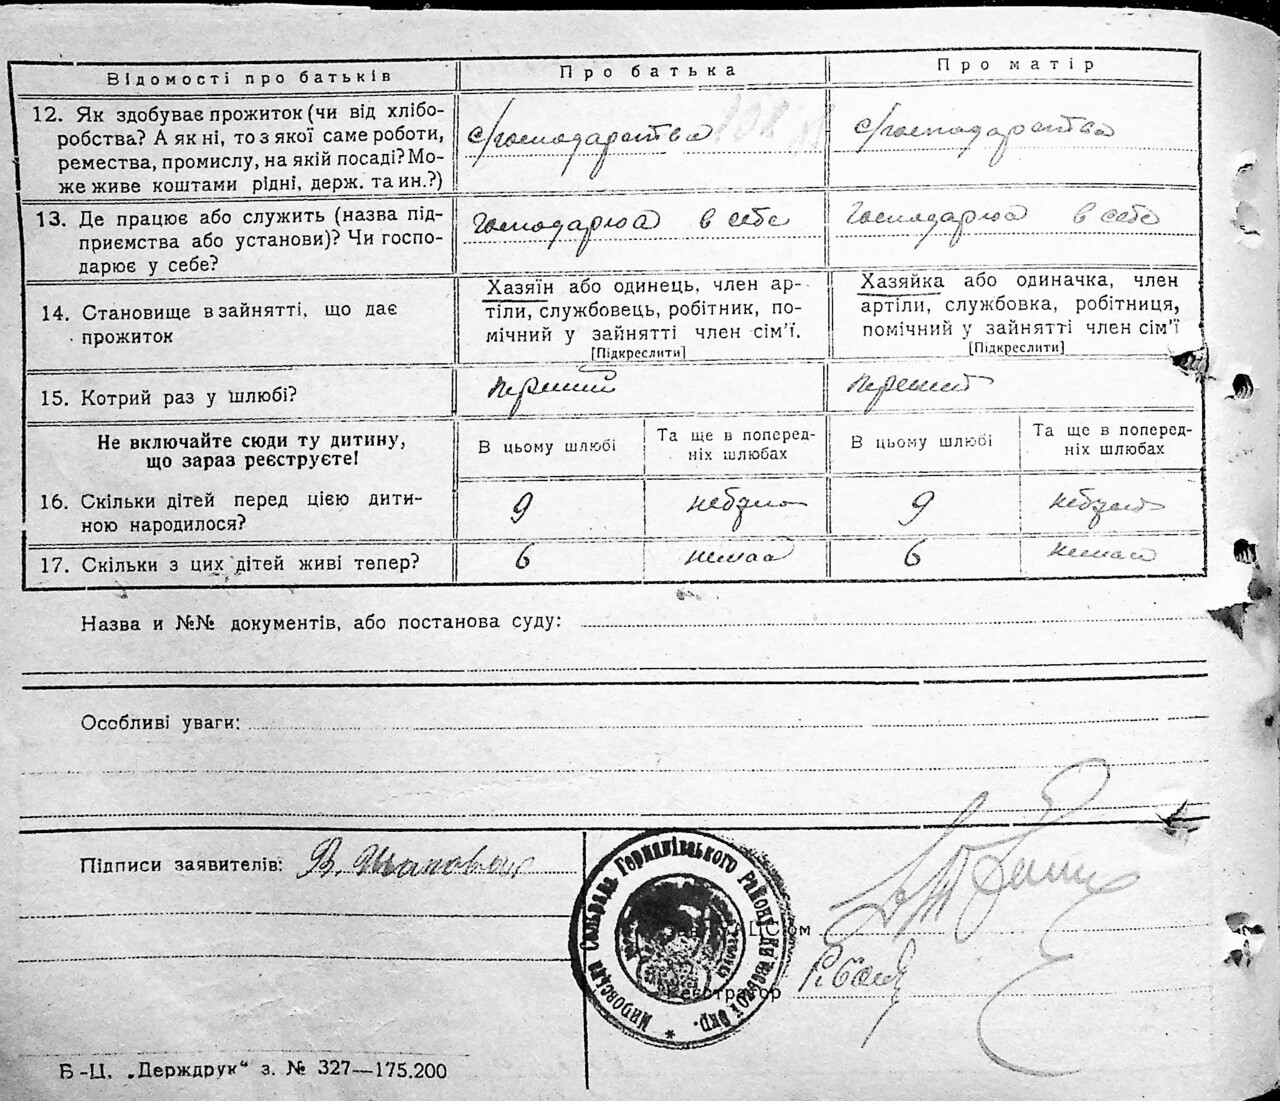 Відомості про батьків
Про батька
Про матір
12. Як здобуває прожиток (чи від хлібо-
робства? А як ні, то з якої саме роботи,
ремества, промислу, на якій посаді? Мо-
же живе коштами рідні, держ. та ин.?)
с/господарства
с/господарства
13. Де працює або служить (назва під-
приємства або установи)? Чи госпо-
дарює у себе?
господарюа в себе
господарюа в себе
14. Становище в зайнятті, що дає
прожиток
Хазяїн або одинець, член ар-
тіли, службовець, робітник, по-
мічний у зайнятті член сім’ї.
[Підкреслити]
Хазяйка або одиначка, член
артіли, службовка, робітниця,
помічний у зайнятті член сім’ї
[Підкреслити]
15. Котрий раз у шлюбі?
перший
перший
Не включайте сюди ту дитину,
що зараз реєструєте!
В цьому шлюбі
Та ще в поперед-
ніх шлюбах
В цьому шлюбі
Та ще в поперед-
ніх шлюбах
16. Скільки дітей перед цією дити-
ною народилося?
9
небуло
9
небуло
17. Скільки з цих дітей живі тепер?
6
немаа
6
немаа
Назва и №№ документів, або постанова суду:
Особливі уваги:
Підписи заявителів: В.
Мировська Сільрада Германівського Району Київської Окр.
Реєстратор
Б-Ц. „Держдрук“ з. № 327—175.200